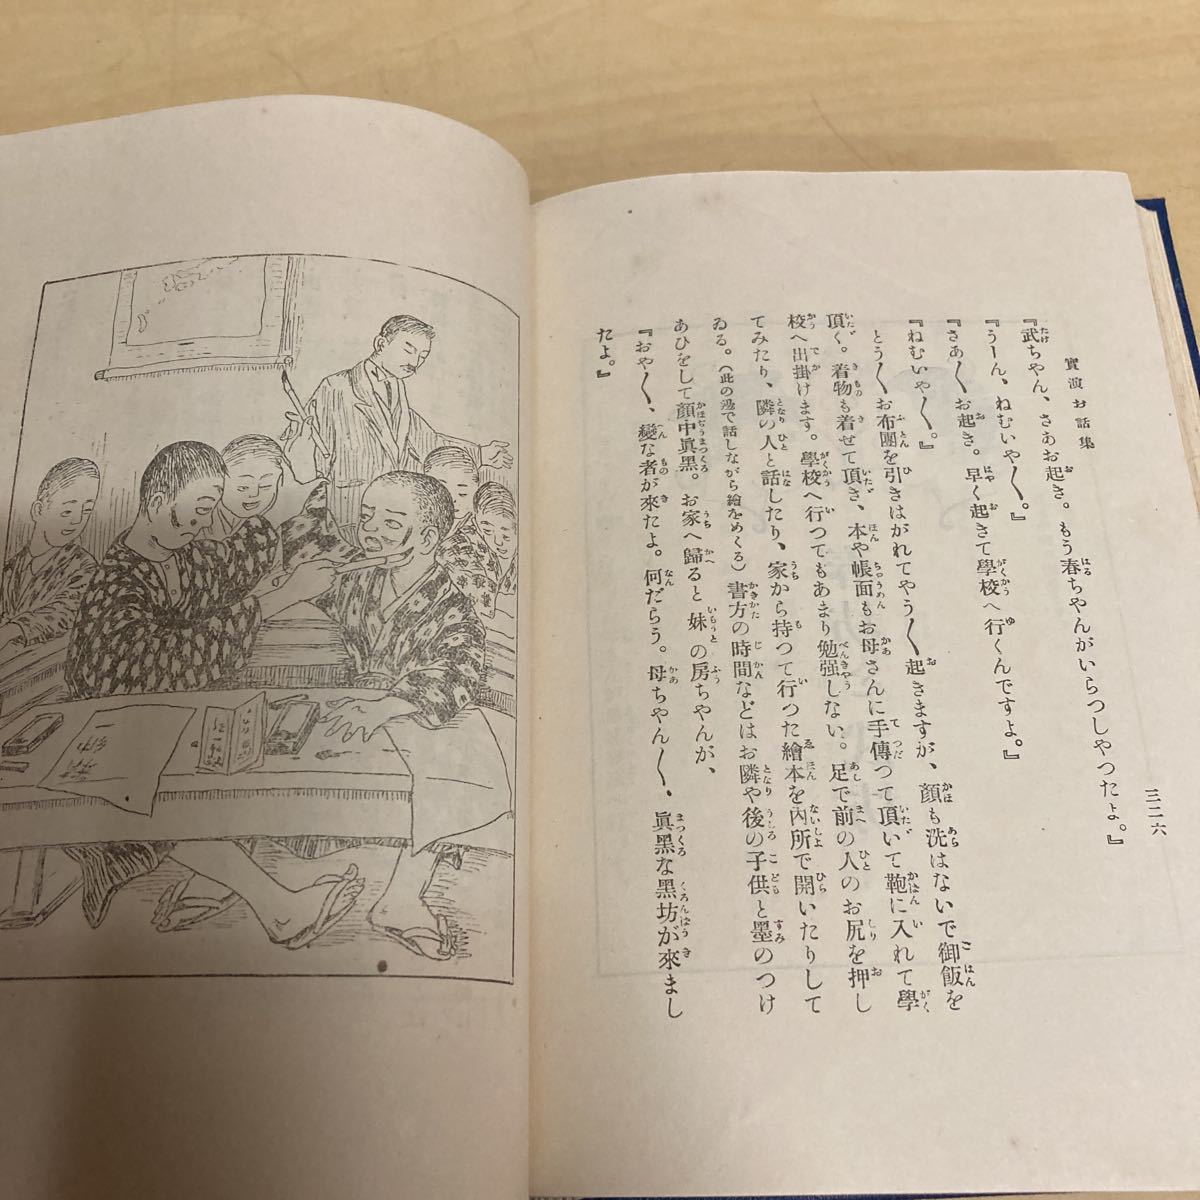 實演お話集
三二六
『武ちやん、さあお起き。もう春ちやんがいらつしやつたよ。』
『うーん、ねむいや〳〵。』
『さあ〳〵お起き。早く起きて學校へ行くんですよ。』
『ねむいや〳〵。』
とう〳〵お布團を引きはがれてやう〳〵起きますが、顔も洗はないで御飯を
頂く。着物も着せて頂き、本や帳面もお母さんに手傳つて頂いて鞄に入れて學
校へ出掛けます。學校へ行つてもあまり勉强しない。足で前の人のお尻を押し
てみたり、隣の人と話したり、家から持つて行つた繪本を內所で開いたりして
ゐる。（此の邊で話しながら繪をめくる）書方の時間などはお隣や後の子供と墨のつけ
あひをして顔中眞黑。お家へ歸ると妹の房ちやんが、
『おや〳〵、變な者が來たよ。何だらう。母ちやん〳〵、眞黑な黑坊が來まし
たよ。』